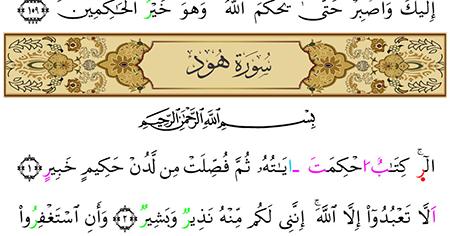 إِلَيْكَ وَاصْبِرْ حَتَّىٰ يَحْكُمَ اللَّهُ ۚ وَهُوَ خَيْرُ الْحَاكِمِينَ ﴿١٠٩﴾
سُورَةُ هُود
بِسْمِ اللَّهِ الرَّحْمَٰنِ الرَّحِيمِ
الٓرۚ كِتَابٌ أُحْكِمَتْ آيَاتُهُ ثُمَّ فُصِّلَتْ مِن لَّدُنْ حَكِيمٍ خَبِيرٍ ﴿١﴾
أَلَّا تَعْبُدُوٓا إِلَّا اللَّهَ ۚ إِنَّنِي لَكُم مِّنْهُ نَذِيرٌ وَبَشِيرٌ ﴿٢﴾ وَأَنِ اسْتَغْفِرُوا